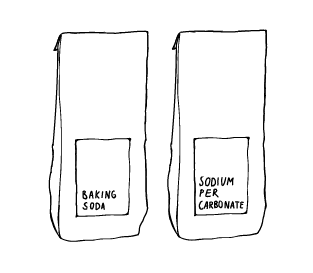 BAKING
SODA
SODIUM
PER
CARBONATE